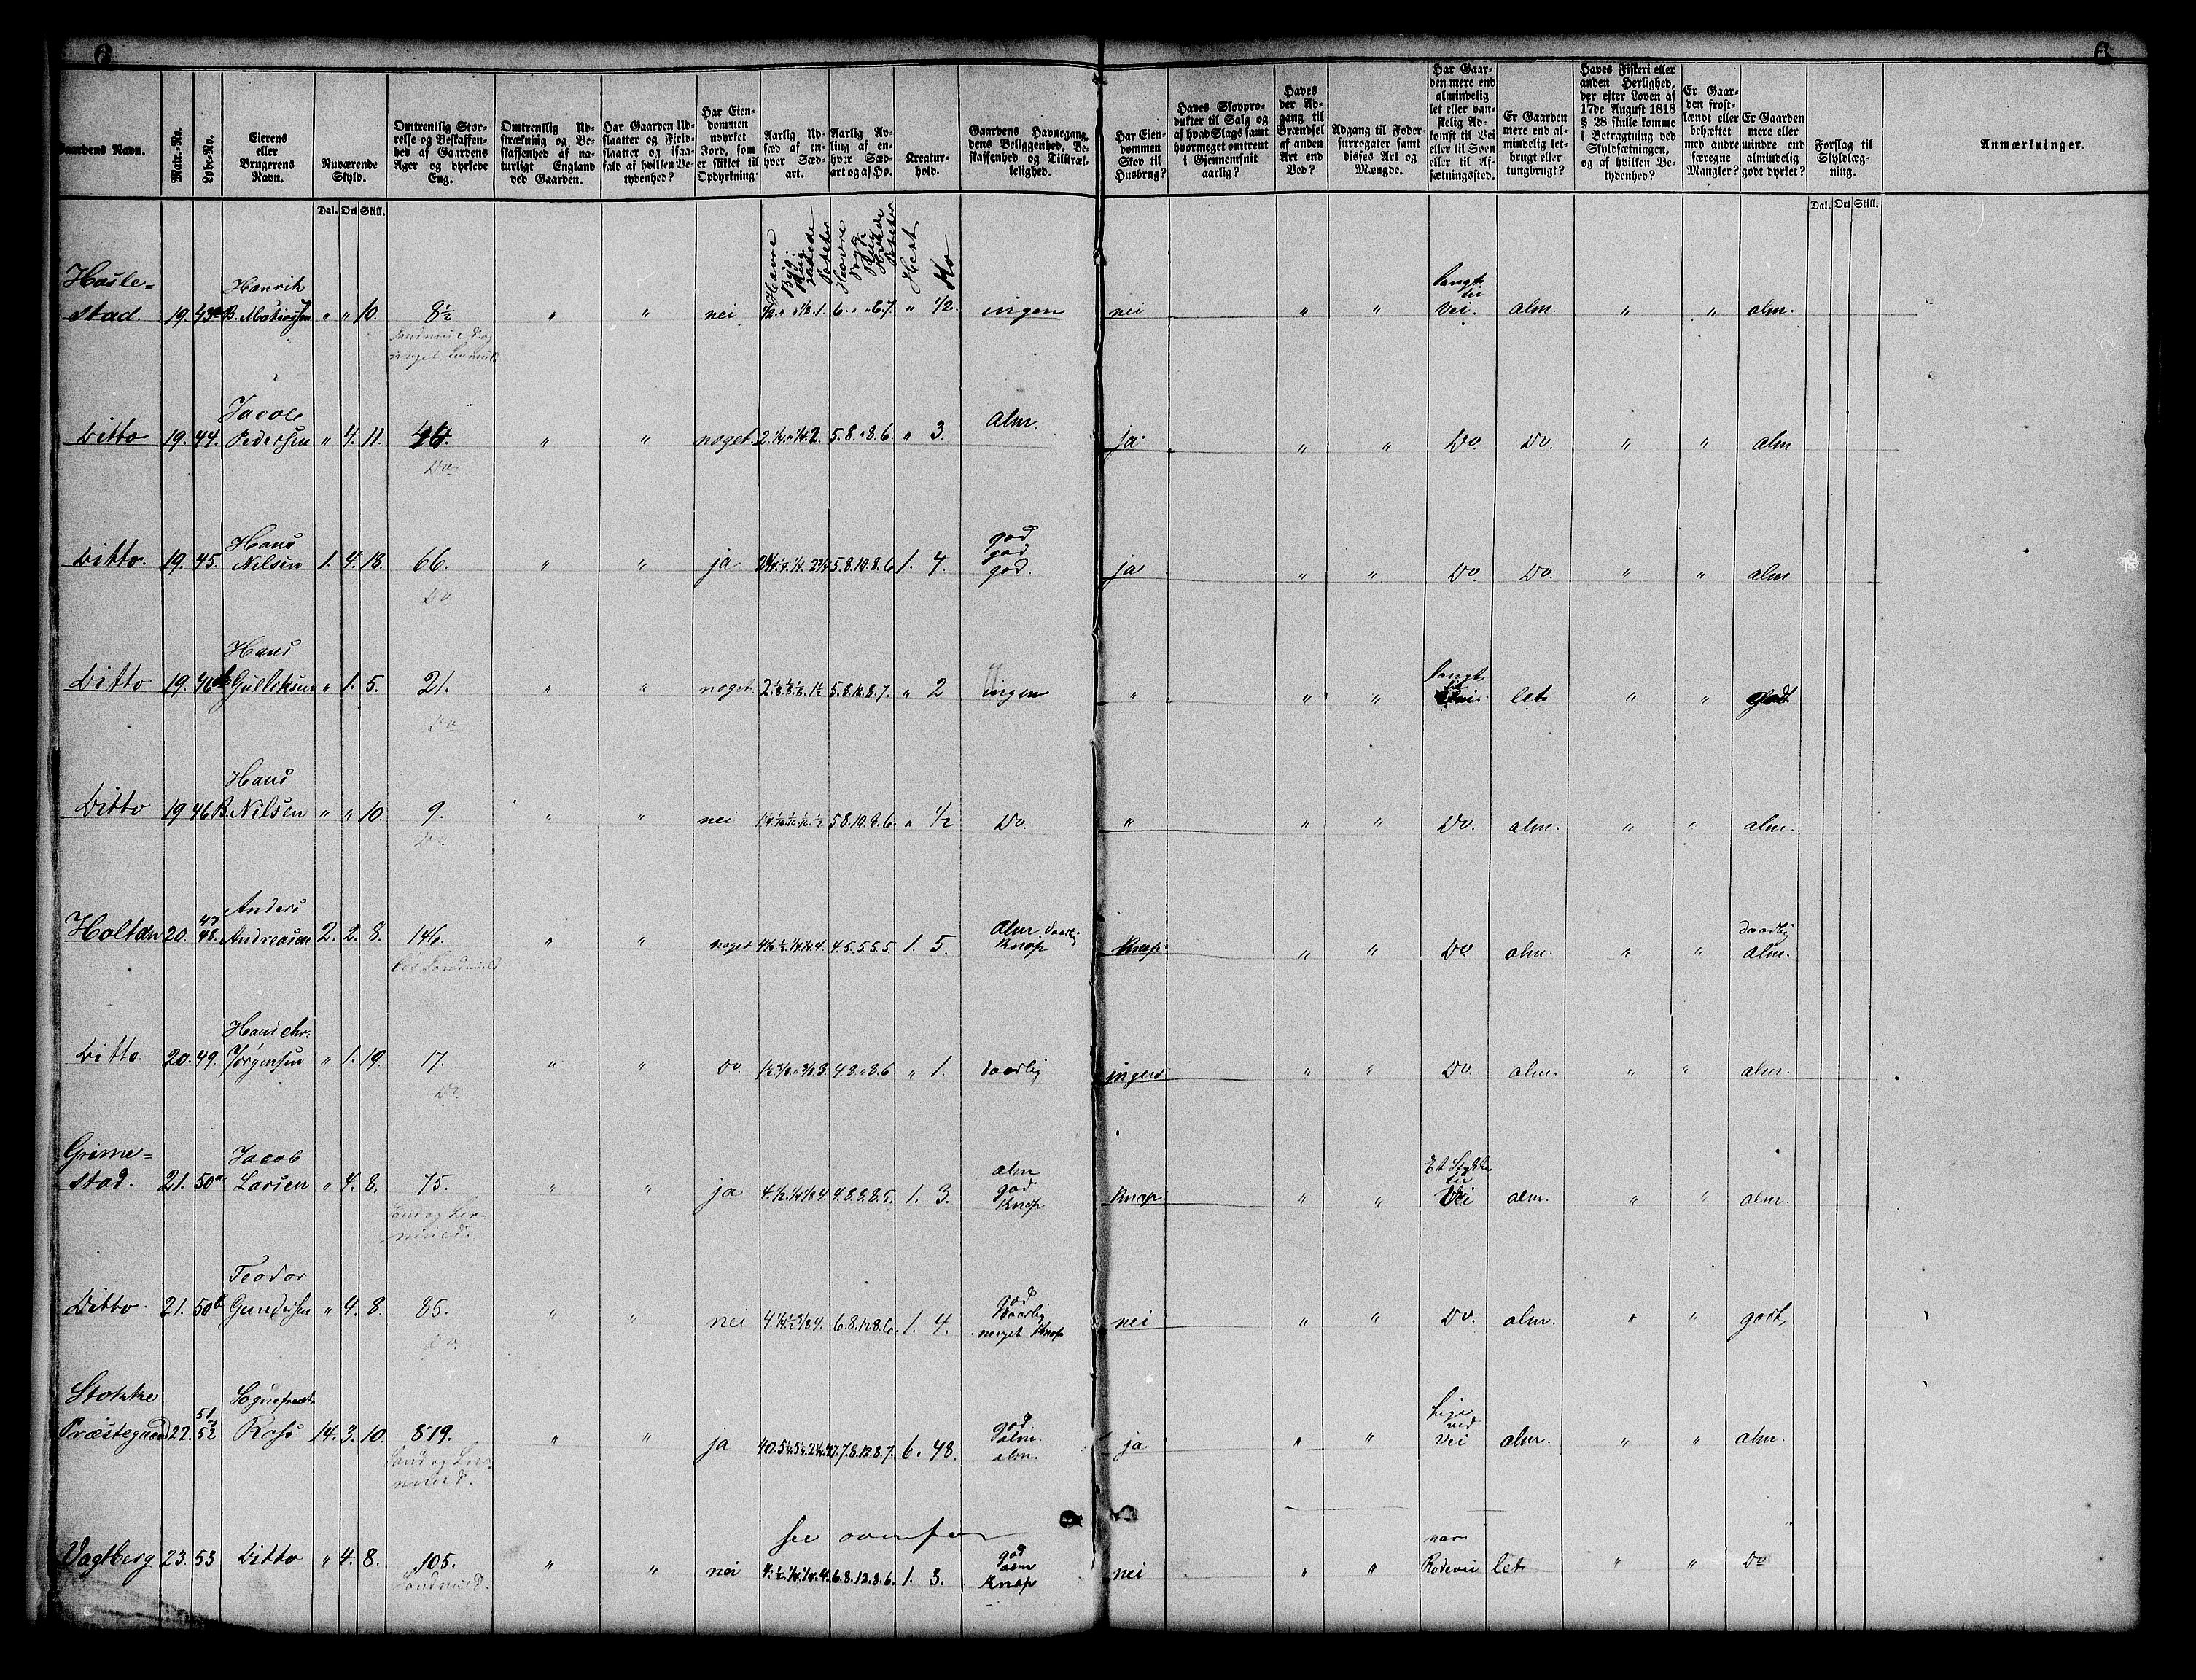 6 6
Gaardens Navn. Matr.-No. Løbe-No. Eierens eller Brugerens Navn. Nuværende Skyld. Omtrentlig Størrelse og Beskaffenhed af Gaardens Ager og dyrkede Eng. Omtrentlig Udstrækning og Beskaffenhed af naturligt England ved Gaarden. Har Gaarden Udslaatter og Fjeldslaatter og isaafald af hvilken Betydenhed? Har Eiendommen udyrket Jord, som er skikket til Opdyrkning? Aarlig Udsæd af enhver Sædart. Aarlig Avling af enhver Sædart og af Hø. Kreaturhold. Gaardens Havnegang, dens Beliggenhed, Beskaffenhed og Tilstrækkelighed. Har Eiendommen Skov til Husbrug? Haves Skovprodukter til Salg og af hvad Slags samt hvormeget omtrent i Gjennemsnit aarlig? Haves der Adgang til Brændsel af anden Art end Ved? Adgang til Fodersurrogater samt disses Art og Mængde. Har Gaarden mere end almindelig let eller vanskelig Adkomst til Vei eller til Søen eller til Afsætningssted. Er Gaarden mere end almindelig letbrugt eller tungbrugt? Haves Fiskeri eller anden Herlighed, der efter Loven af 17de August 1818 § 28 skulle komme i Betragtning ved Skyldsætningen, og af hvilken Betydenhed? Er Gaarden frostlændt eller behæftet med andre særegne Mangler? Er Gaarden mere eller mindre end almindelig godt dyrket? Forslag til Skyldlægning. Anmærkninger.
Dal. Ort Skill. Dal. Ort Skill.
Havre Byg Rug Hvede Poteter Havre Byg Rug Hvede Poteter Hest Ko
Hasle= Henrik langt til
stad. 19. 43a B. Mathisen " " 10. 8½ " " nei 6. " 6.7. " ½. ingen nei " " Vei. alm. " " alm.
Sandmuld og
noget Leermuld
Jacob alm.
Ditto 19. 44. Pedersen " 4. 11. " " noget 5.8. " 8.6. " 3. ja " " Do. Do. " " alm
Do
Hans god god
Ditto. 19. 45. Nilsen 1. 4. 18. 66. " " ja 5.8.10.8.6. 1. 4. god. ja " " Do. Do. " " alm
Do
Hans langt til
Ditto 19. 46a Gulliksen " 1. 5. 21. " " noget 5.8.12.8.7. " 2 ingen " " " Vei. let " " godt
Do
Hans
Ditto 19 46 B. Nilsen " " 10. 9. " " nei 5 8.10.8.6. " ½ Do. " " " Do. alm. " " alm.
Do.
47 Anders alm daarlig daarlig
Holtan 20. 48. Andreasen 2. 2. 8. 146. " " noget 4.5.5.5.5. 1. 5. Knap Knap " " Do alm. " " alm.
Sandmuld
Hans Chr.
Ditto. 20. 49. Jørgensen " 1. 19. 17. " " Do. 4.8. " 8.6 " 1. daarlig ingen " " Do. alm. " " alm.
Do.
Grime= Jacob alm god Et Stykke til
stad. 21. 50a Larsen " 4. 8. 75. " " ja 4.8.8.8.5. 1. 3. Knap Knap " " Vei alm. " " alm.
Sand og Leer=
muld.
Teodor god daarlig
Ditto. 21. 50b Gundersen " 4. 8. 85. " " nei 6.8.12.8.6. 1. 4. noget Knap nei " " Do. alm. " " godt
Do.
Stokke 51 Sognepræst god alm. Lige ved
Præstegaard 22. 52 Ross 14. 3. 10. 879. " " ja 7.8.12.8.7. 6. 48. alm. ja " " Vei alm. " " alm.
Sand og Leer=
muld.
see ovenfor god alm nær
Vagtberg 23. 53 Ditto " 4. 8. 105. " " nei 6.8.12.8.6. 1. 3. Knap nei " " Rodevei let " " Do
Sandmuld.